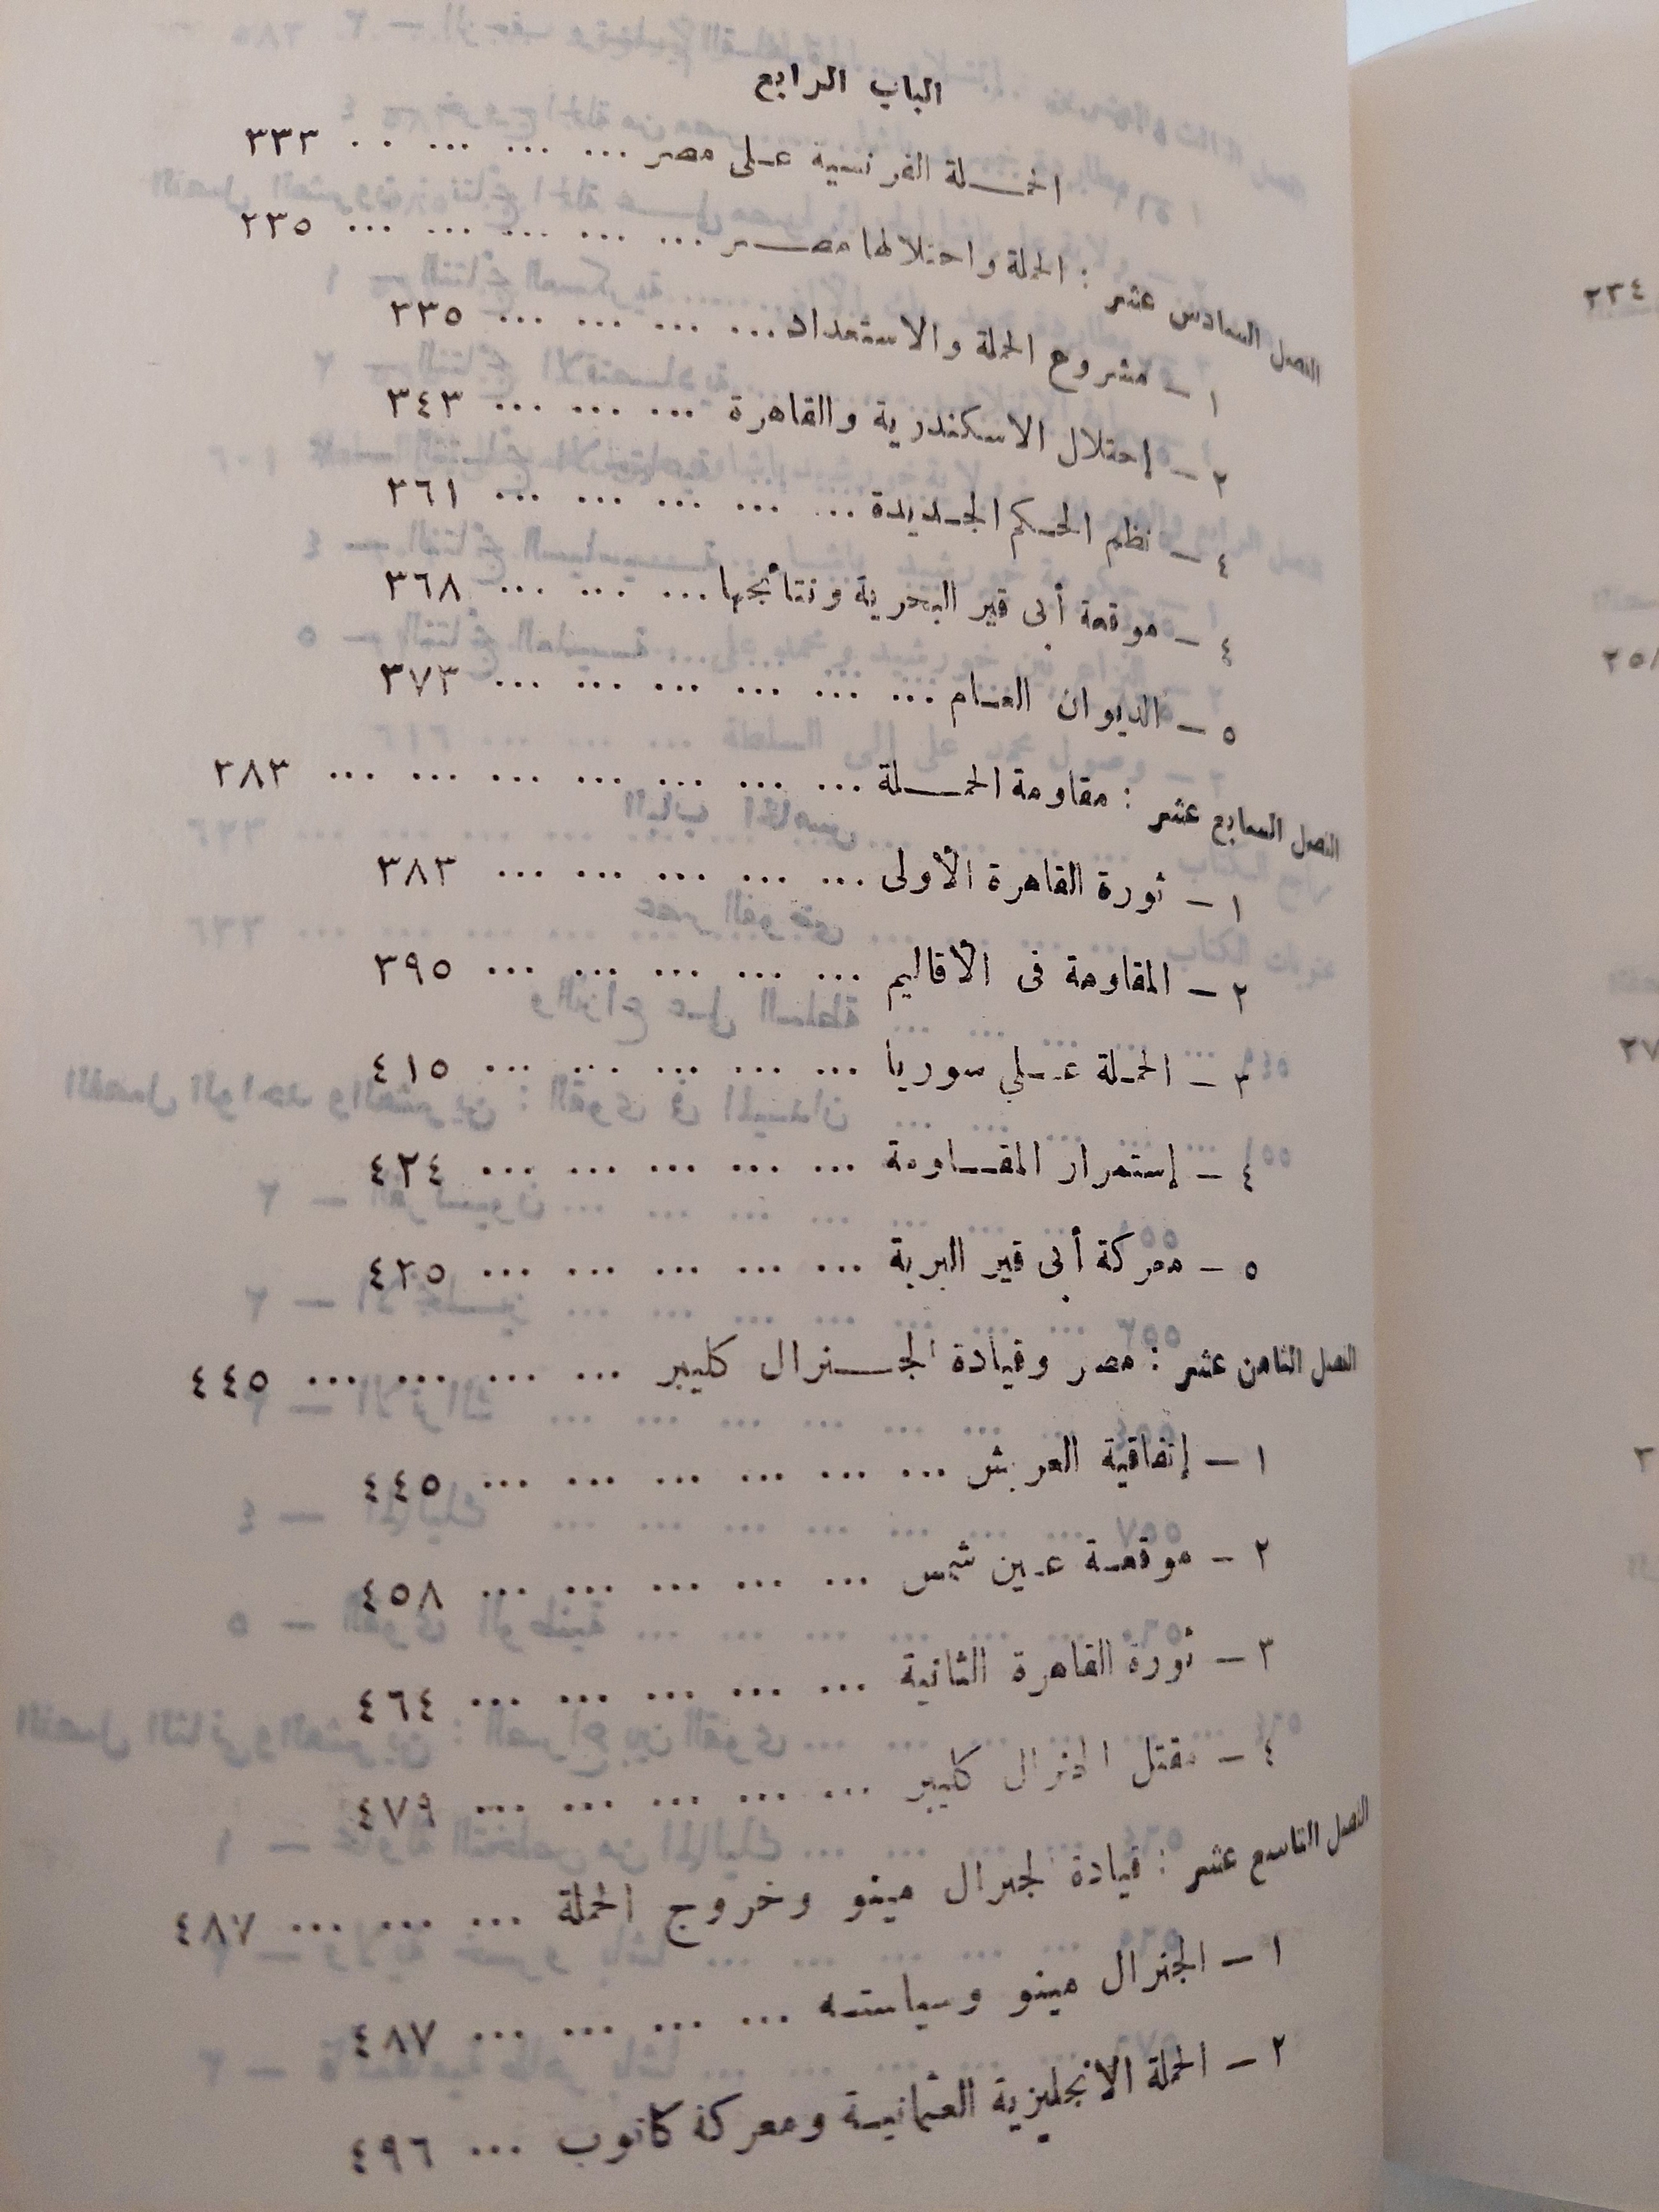 الباب الرابع
الحملة الفرنسية على مصر ... ... ... ... .. ٣٣٣
الفصل السادس عشر : الحملة واحتلالها مصر ... ... ... ... ... ٣٣٥
١ - مشروع الحملة والاستعداد ... ... ... ... ٣٣٥
٢ - إحتلال الاسكندرية والقاهرة ... ... ... ٣٤٣
٤ - نظم الحكم الجديدة ... ... ... ... ... ٣٦١
٤ - موقعة أبى قير البحرية ونتائجها ... ... ... ٣٦٨
٥ - الديوان العام ... ... ... ... ... ... ٣٧٣
الفصل السابع عشر : مقاومة الحملة ... ... ... ... ... ... ... ٣٨٣
١ - ثورة القاهرة الأولى ... ... ... ... ... ٣٨٣
٢ - المقاومة فى الأقاليم ... ... ... ... ... ٣٩٥
٣ - الحملة على سوريا ... ... ... ... ... ٤١٥
٤ - إستمرار المقاومة ... ... ... ... ... ٤٢٤
٥ - معركة أبى قير البرية ... ... ... ... ... ٤٢٥
الفصل الثامن عشر : مصر وقيادة الجنرال كليبر ... ... ... ... ... ٤٤٥
١ - إتفاقية العريش ... ... ... ... ... ... ٤٤٥
٢ - موقعة عين شمس ... ... ... ... ... ٤٥٨
٣ - ثورة القاهرة الثانية ... ... ... ... ... ٤٦٤
٤ - مقتل الجنرال كليبر ... ... ... ... ... ٤٧٩
الفصل التاسع عشر : قيادة لجنرال مينو وخروج الحملة ... ... ... ... ٤٨٧
١ - الجنرال مينو وسياسته ... ... ... ... ٤٨٧
٢ - الحملة الانجليزية العثمانية ومعركة كانوب ... ٤٩٦
٢٣٤